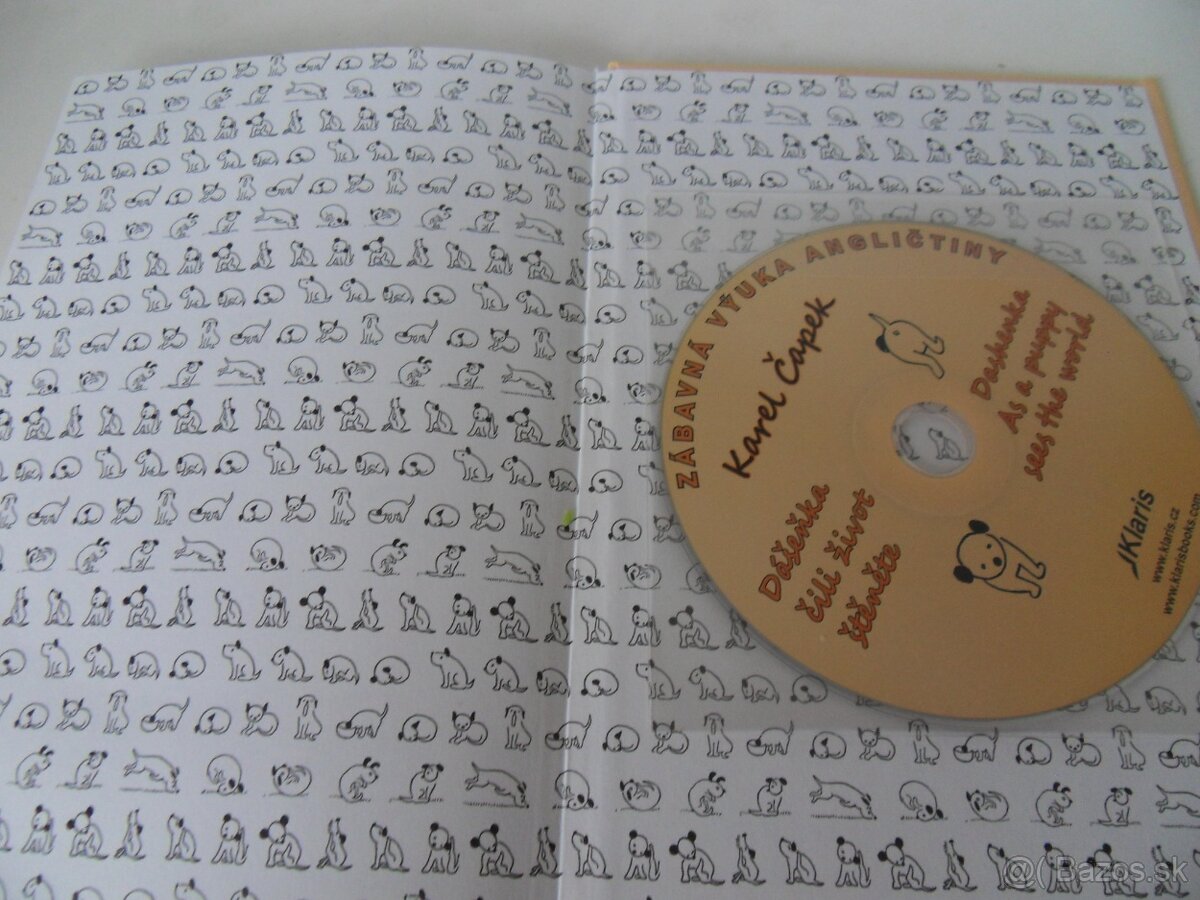 ZÁBAVNÁ VÝUKA ANGLIČTINY
Karel Čapek
Dášeňka
čili život
štěněte
Dashenka
As a puppy
sees the world
Klaris
www.klaris.cz
www.klarisbooks.com
@( Bazos.sk